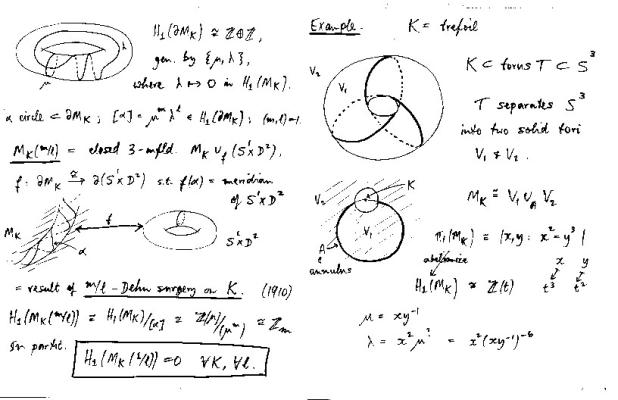 H₁(∂M_K) ≅ ℤ⊕ℤ,
gen. by {μ, λ},
where λ ↦ 0 in H₁(M_K).
λ
μ
α circle ⊂ ∂M_K ; [α] = μ^m λ^l ∈ H₁(∂M_K) ; (m,l)=1.
M_K(m/l) = closed 3-mfld. M_K ∪_f (S¹×D²),
f: ∂M_K ≅→ ∂(S¹×D²) s.t. f(α) = meridian
of S¹×D²
M_K
f
α
S¹×D²
= result of m/l-Dehn surgery on K. (1910)
H₁(M_K(m/l)) ≅ H₁(M_K)/[α] ≅ ℤ(μ)/(μ^m) ≅ ℤ_m
In partic.
H₁(M_K(1/l)) = 0 ∀K, ∀l.
Example. K = trefoil
V₂
V₁
K ⊂ torus T ⊂ S³
T separates S³
into two solid tori
V₁ & V₂.
K
V₂
V₁
A
annulus
M_K ≅ V₁ ∪_A V₂
π₁(M_K) = |x,y : x² = y³|
abelianize
x y
H₁(M_K) ≅ ℤ(t) t³ t²
μ = xy⁻¹
λ = x² (xy⁻¹)⁻⁶